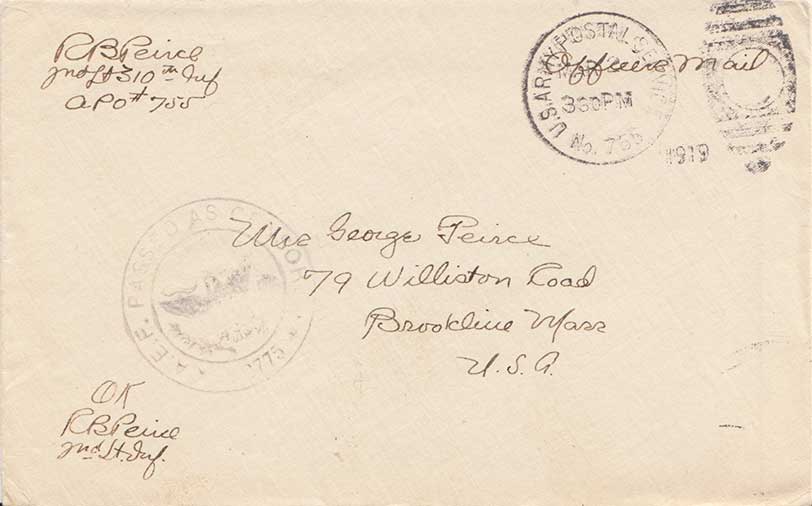 R B Peirce
2nd Lt 310th Inf
APO # 755
U.S. ARMY POSTAL SERVICE
330PM
No. 755
1919
Officers Mail
Mrs George Peirce
79 Williston Road
Brookline Mass
U.S.A.
A.E.F. PASSED AS CENSORED
OK
R B Peirce
2nd Lt. Inf.